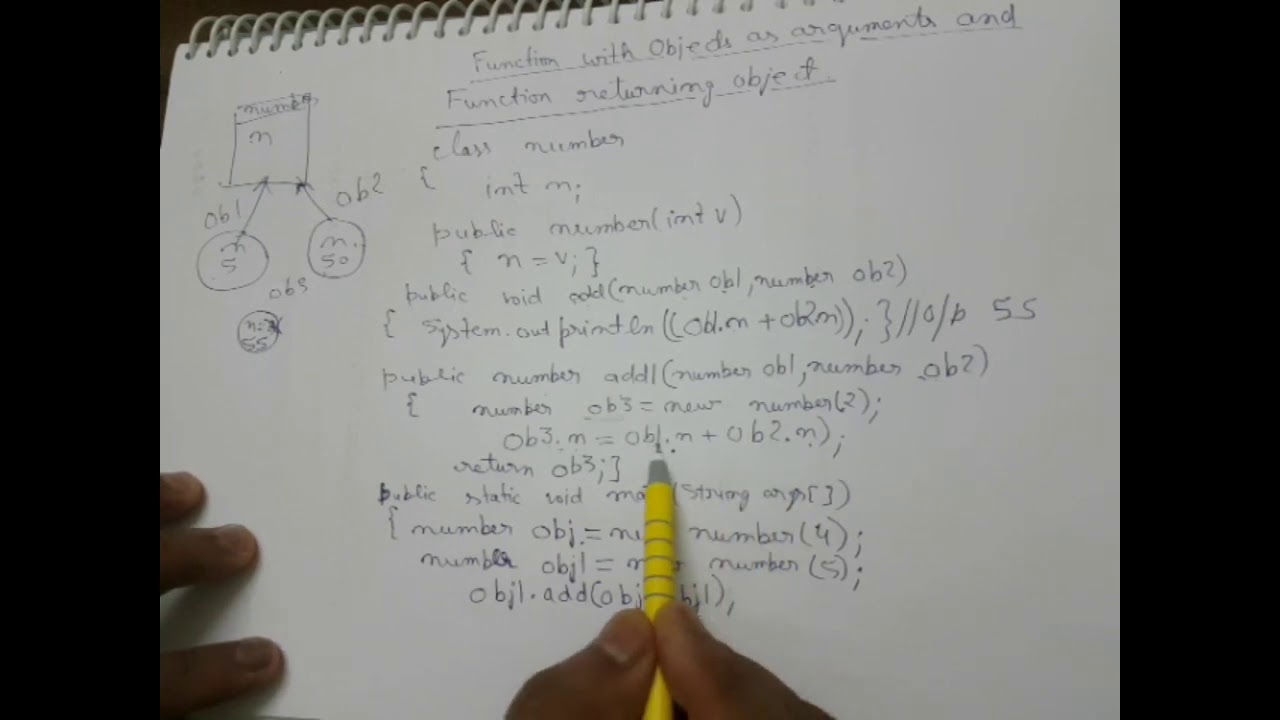 Function with Objects as arguments and
Function returning object.
class number
{ int n;
public number(int v)
{ n = v; }
public void add(number ob1, number ob2)
{ System.out println ((ob1.n + ob2n)); } //o/p 55
public number add1(number ob1, number ob2)
{ number ob3 = new number(2);
ob3.n = ob1.n + ob2.n);
return ob3; }
public static void (String args[])
{ number obj = number(4);
number obj1 = number (5);
obj1.add(obj obj1),
number
n
ob1
ob2
n
5
n.
50
ob3
55